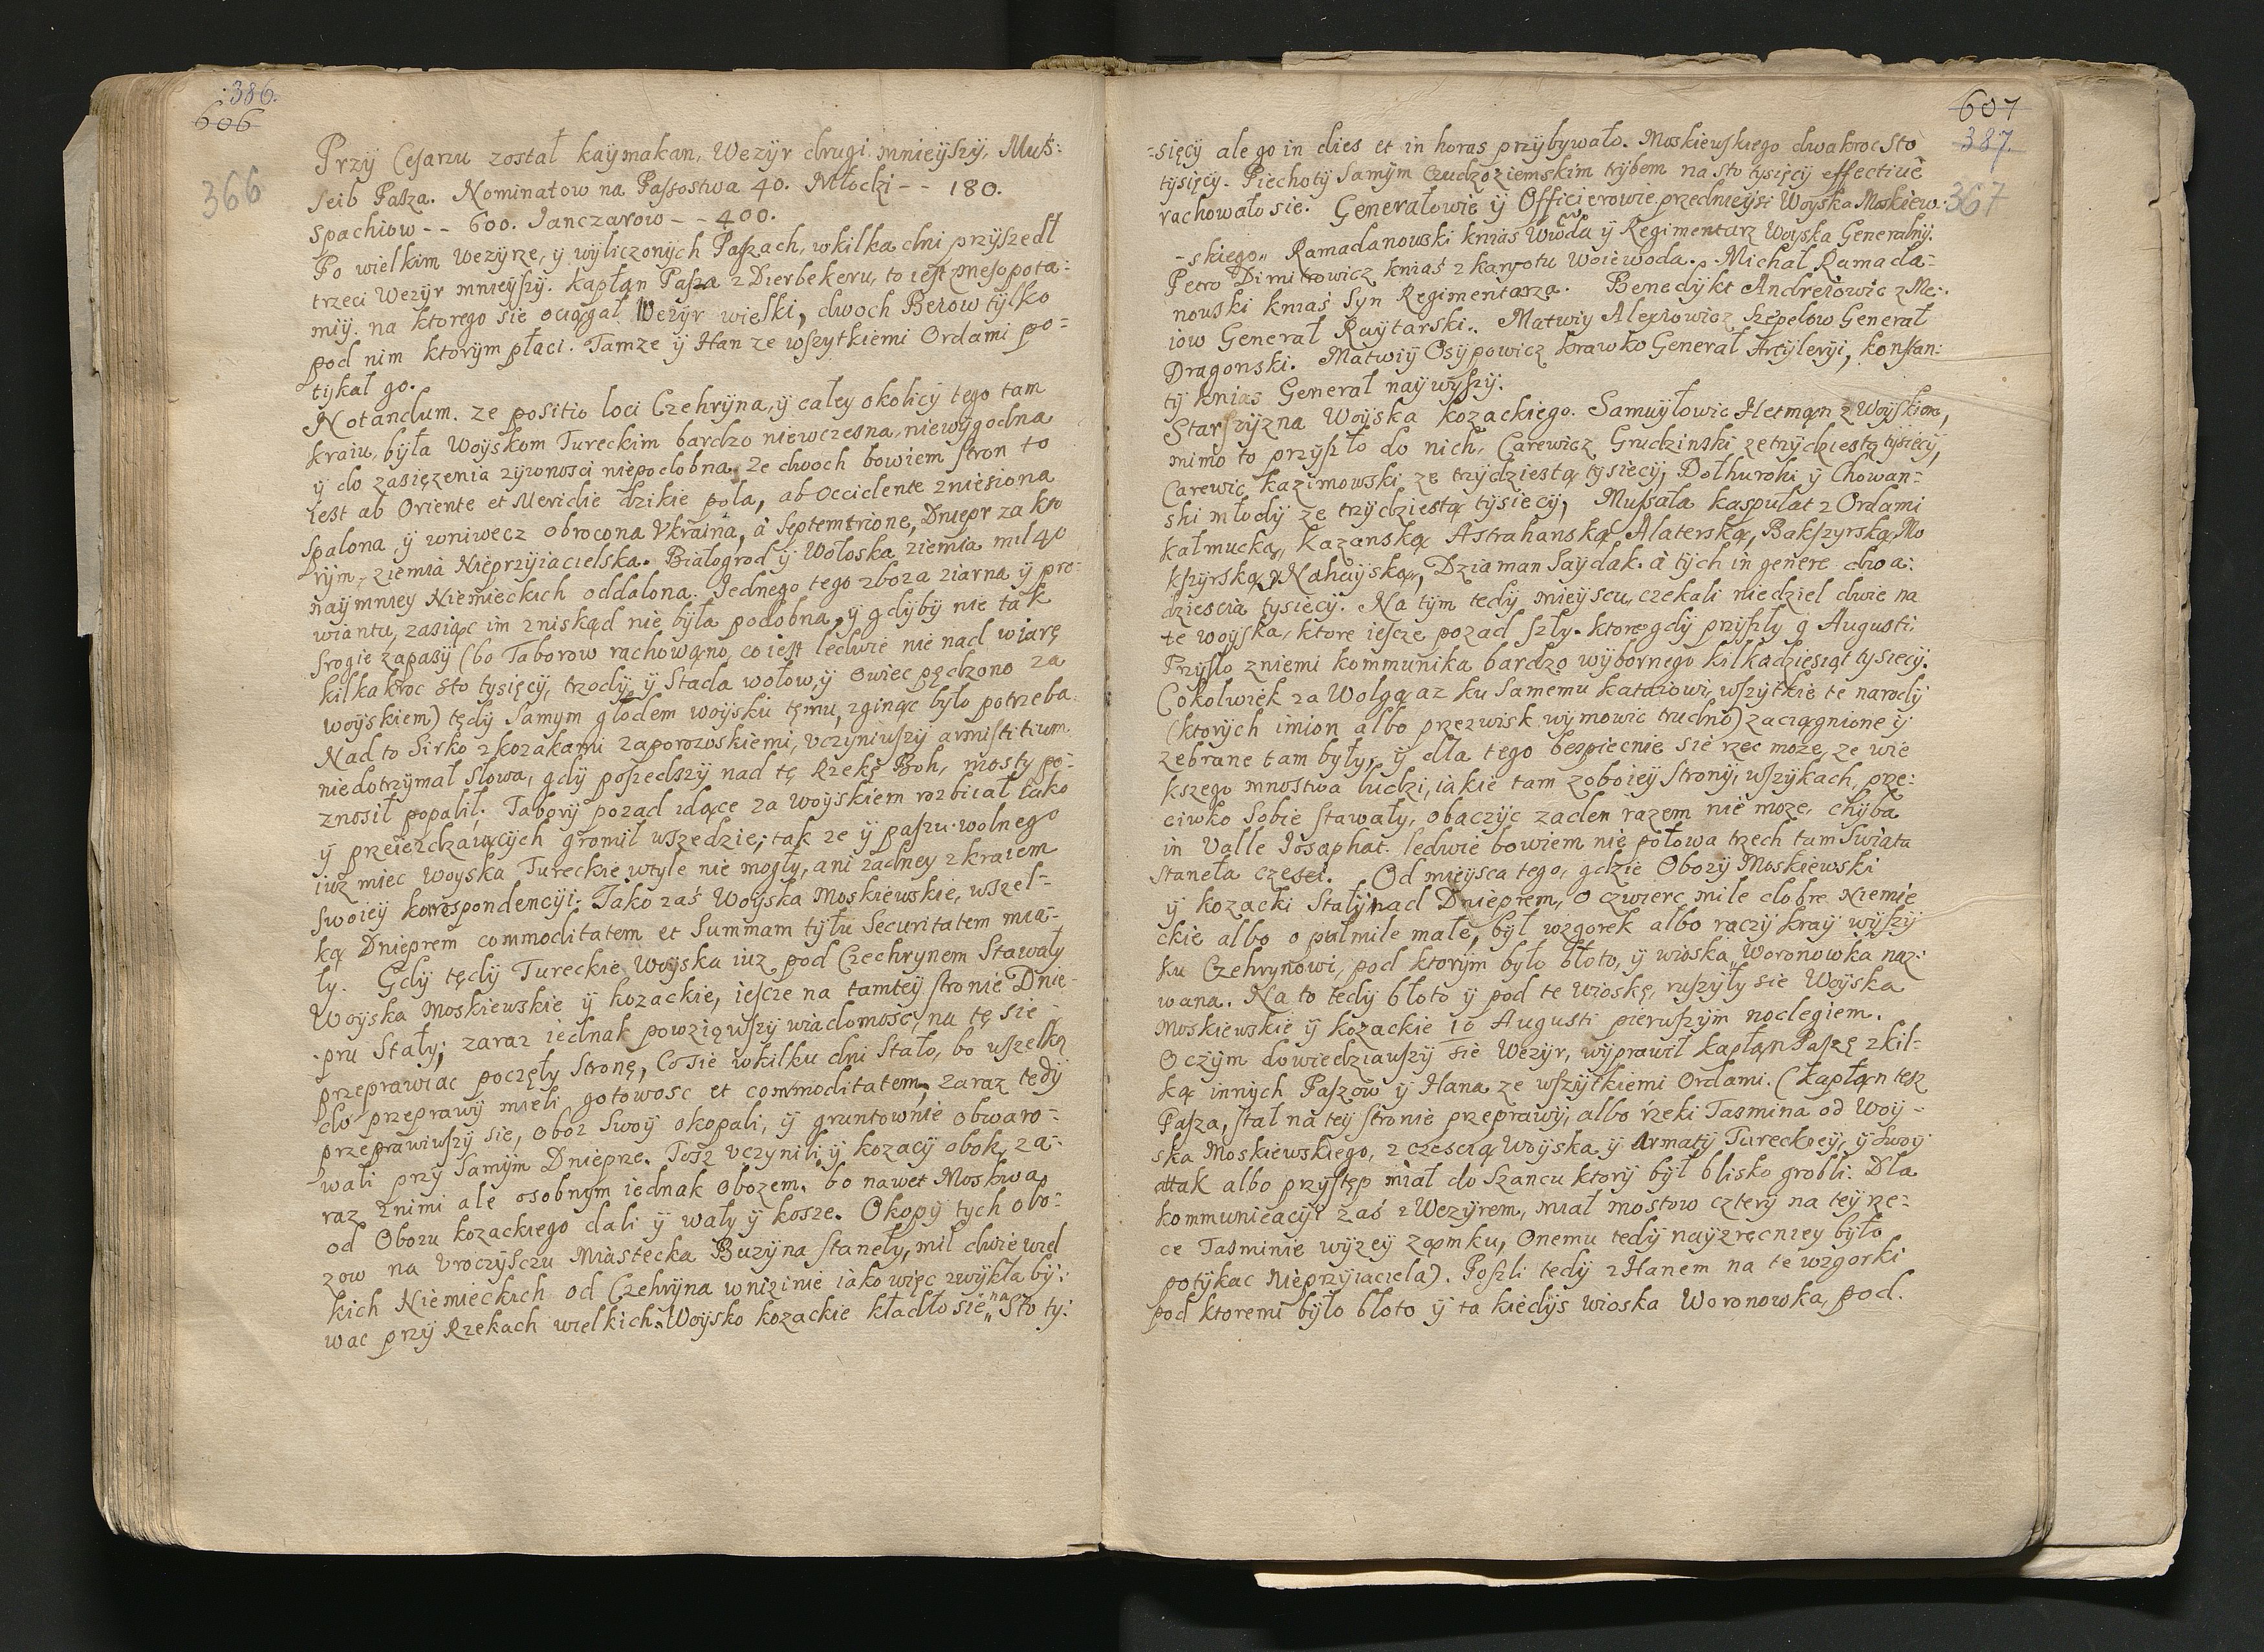 386.
606
366
Przÿ Cesarzu został kaÿmakan, Wezÿr drugi mnieÿszÿ, Muś:
seib Pasza. Nominatow na Passostwa 40. Młodzi - - 180.
Spachiow - - 600. Janczarow - - 400.
Po wielkim wezÿrze, ÿ wÿliczonÿch Paszach, w kilka dni przÿszedł
trzeci Wezÿr mnieÿszÿ. kapłan Pasza z Dierbekeru, to iest z mesopota:
miÿ. na ktorego sie ociągał Wezÿr wielki, dwoch Beiow tÿlko
pod nim ktorÿm płaci. Tamze ÿ Han ze wszÿtkiemi Ordami po=
tÿkał go.
Notandum. ze positio loci Czehrÿna, ÿ całeÿ okolicÿ tego tam
kraiu, bÿła Woÿskom Tureckim bardzo niewczesna, niewÿgodna
ÿ do zasięzenia zÿwnosci niepodobna. Ze dwoch bowiem stron to
iest ab Oriente et Meridie dzikie pola, ab Occidente zniesiona
spalona, ÿ wniwecz obrocona Vkraina, à Septemtrione, Dniepr za kto
rÿm, ziemia Nieprzÿiacielska. Białogrod ÿ Wołoska ziemia mil 40
naÿmnieÿ Niemieckich oddalona. Jednego tego zboza ziarna ÿ pro:
wiantu, zasiąc im zniskąd nie bÿła podobna, ÿ gdÿbÿ nie tak
srogie zapasÿ (bo Taborow rachowano, co iest ledwie nie nad wiarę
kilkakroc sto tysięcÿ, trzodÿ ÿ Stada wołow, ÿ owiec pędzono za
woÿskiem) tędÿ samÿm głodem woÿsku temu, zginąc bÿło potrzeba.
Nad to Sirko z kozakami Zaporozskiemi, vczÿniwszÿ armistitium
niedotrzÿmał słowa, gdÿ poszedszÿ nad tę Rzekę Boh, mostÿ po=
znosił popalił. Taborÿ pozad idące za woÿskiem rozbiiał iako
ÿ przeiezdzaiącÿch gromił wszedzie; tak ze ÿ paszu wolnego
iuz miec woÿska Tureckie wtÿle nie mogłÿ, ani zadneÿ z kraiem
swoieÿ korrespondencÿi. Jako zaś Woÿska Moskiewskie, wszel=
ką Dnieprem commoditatem et Summam tÿłu Securitatem mia=
łÿ. Gdÿ tędÿ Tureckie Woÿska iuz pod Czechrÿnem Stawałÿ
Woÿska Moskiewskie ÿ kozackie, iescze na tamteÿ stronie Dnie-
pru Stałÿ; zaraz iednak powziąwszÿ wiadomosc, na tę sie
przeprawiac poczęłÿ stronę, Co sie w kilku dni Stało, bo wszelką
do przeprawÿ mieli gotowosc et commoditatem, zaraz tedÿ
przeprawiwszÿ sie, oboz Swoÿ okopali, ÿ gruntownie obwaro=
wali przÿ Samÿm Dnieprze. Tosz vczÿnili ÿ kozacÿ obok, za=
raz znimi ale osobnÿm iednak obozem. bo nawet Moskwa
od Obozu kozackiego dali ÿ wałÿ ÿ kosze. Okopÿ tÿch obo=
zow na vroczÿsczu Miastecka Buzÿna stanełÿ, mil dwie wiel
kich Niemieckich od Czehrÿna w nizinie iako więc zwÿkła bÿ:
wac przÿ Rzekach wielkich. Woÿsko kozackie kładło sie „na„ Sto tÿ:
607
387.
367
-sięcÿ ale go in dies et in horas przÿbÿwało. Moskiewskiego dwakroc sto
tÿsięcÿ. Piechotÿ samÿm Cudzoziemskim trÿbem na sto tÿsięcÿ effectiue
rachowało sie. Generałowie ÿ Officierowie przednieÿsi Woÿska Moskiew:
-skiego„ Ramadanowski kniaś Wwoda ÿ Regimentarz Woÿska Generalnÿ.
Petro Dimitrowicz kniaś z kargotu Woiewoda. Michał Ramada=
nowski kniaś Sÿn Regimentarza. Benedÿkt Andreiowic z Me:
iow Generał Raÿtarski. Matwiÿ Alexiowicz szepelow Generał
Dragonski. Matwiÿ Osÿpowicz krawko Generał Artÿlerÿi, konstan:
tÿ knias Generał naÿwÿszÿ.
Starszÿzna Woÿska kozackiego. Samuÿłowic Hetman z Woÿskiem,
mimo to przÿszło do nich, Carewicz Grudzinski ze trÿdziestą tÿsiecÿ,
Carewic kazimowski ze trÿdziestą tÿsiecÿ, Dołhurohi ÿ Chowan=
ski młodÿ ze trÿdziestą tÿsiecÿ, Mussała kaspulat z Ordami
kałmucką, kazanską Astrahanską Alaterską, Bakszÿrską, Mo
kszÿrską, Nahaÿską, Dziaman Saÿdak. à tÿch in genere dwa:
dziescia tÿsiecÿ. Na tÿm tedÿ mieÿscu, czekali niedziel dwie na
te woÿska, ktore iescze pozad szłÿ. ktore gdÿ przÿszłÿ 9 Augusti.
Przÿszło zniemi kommunika bardzo wÿbornego kilkadziesiąt tÿsiecÿ.
Cokolwiek za Wołgą az ku samemu kataiowi, wszÿtkie te narodÿ
(ktorÿch imion albo przezwisk wÿmowic trudno) zaciągnione ÿ
zebrane tam bÿłÿ, ÿ dla tego bespiecnie sie rzec moze, ze wie
kszego mnostwa ludzi, iakie tam zoboieÿ stronÿ, wszÿkach, prze:
ciwko sobie stawałÿ, obaczÿc zaden razem nie moze, chÿba
in Valle Josaphat. ledwie bowiem nie połowa trzech tam Swiata
staneła czesci. Od mieÿsca tego, gdzie Obozÿ Moskiewski
ÿ kozacki stałÿ nad Dnieprem, o czwierc mile dobre Niemie
ckie albo o pułmile małe, bÿł wzgorek albo raczÿ kraÿ wÿszÿ
ku Czehrÿnowi, pod ktorÿm bÿło błoto, ÿ wioska„ Woronowka naz:
wana. Na to tedÿ błoto ÿ pod te wioskę, ruszÿłÿ sie Woÿska
Moskiewskie ÿ kozackie 10 Augusti pierwszÿm noclegiem.
O czÿm dowiedziawszÿ sie Wezÿr, wÿprawił kapłan Paszę z kil=
ką innÿch Paszow ÿ Hana ze wszÿtkiemi Ordami. (kapłan tesz
Pasza, stał na teÿ stronie przeprawÿ, albo rzeki Tasmina od Woÿ-
ska Moskiewskiego, z czescią Woÿska ÿ Armatÿ Tureckieÿ, ÿ swoÿ
attak albo przÿstęp miał do Szancu ktorÿ bÿł blisko grobli. Dla
kommunicacÿi zaś z Wezÿrem, miał mostow czterÿ na teÿ rze=
ce Tasminie wÿzeÿ zamku, Onemu tedÿ naÿzręcnieÿ bÿło
potÿkac Nieprzÿiaciela). Poszli tedÿ z Hanem na te wzgorki
pod ktoremi bÿło błoto ÿ ta kiedÿs wioska Woronowka, pod.